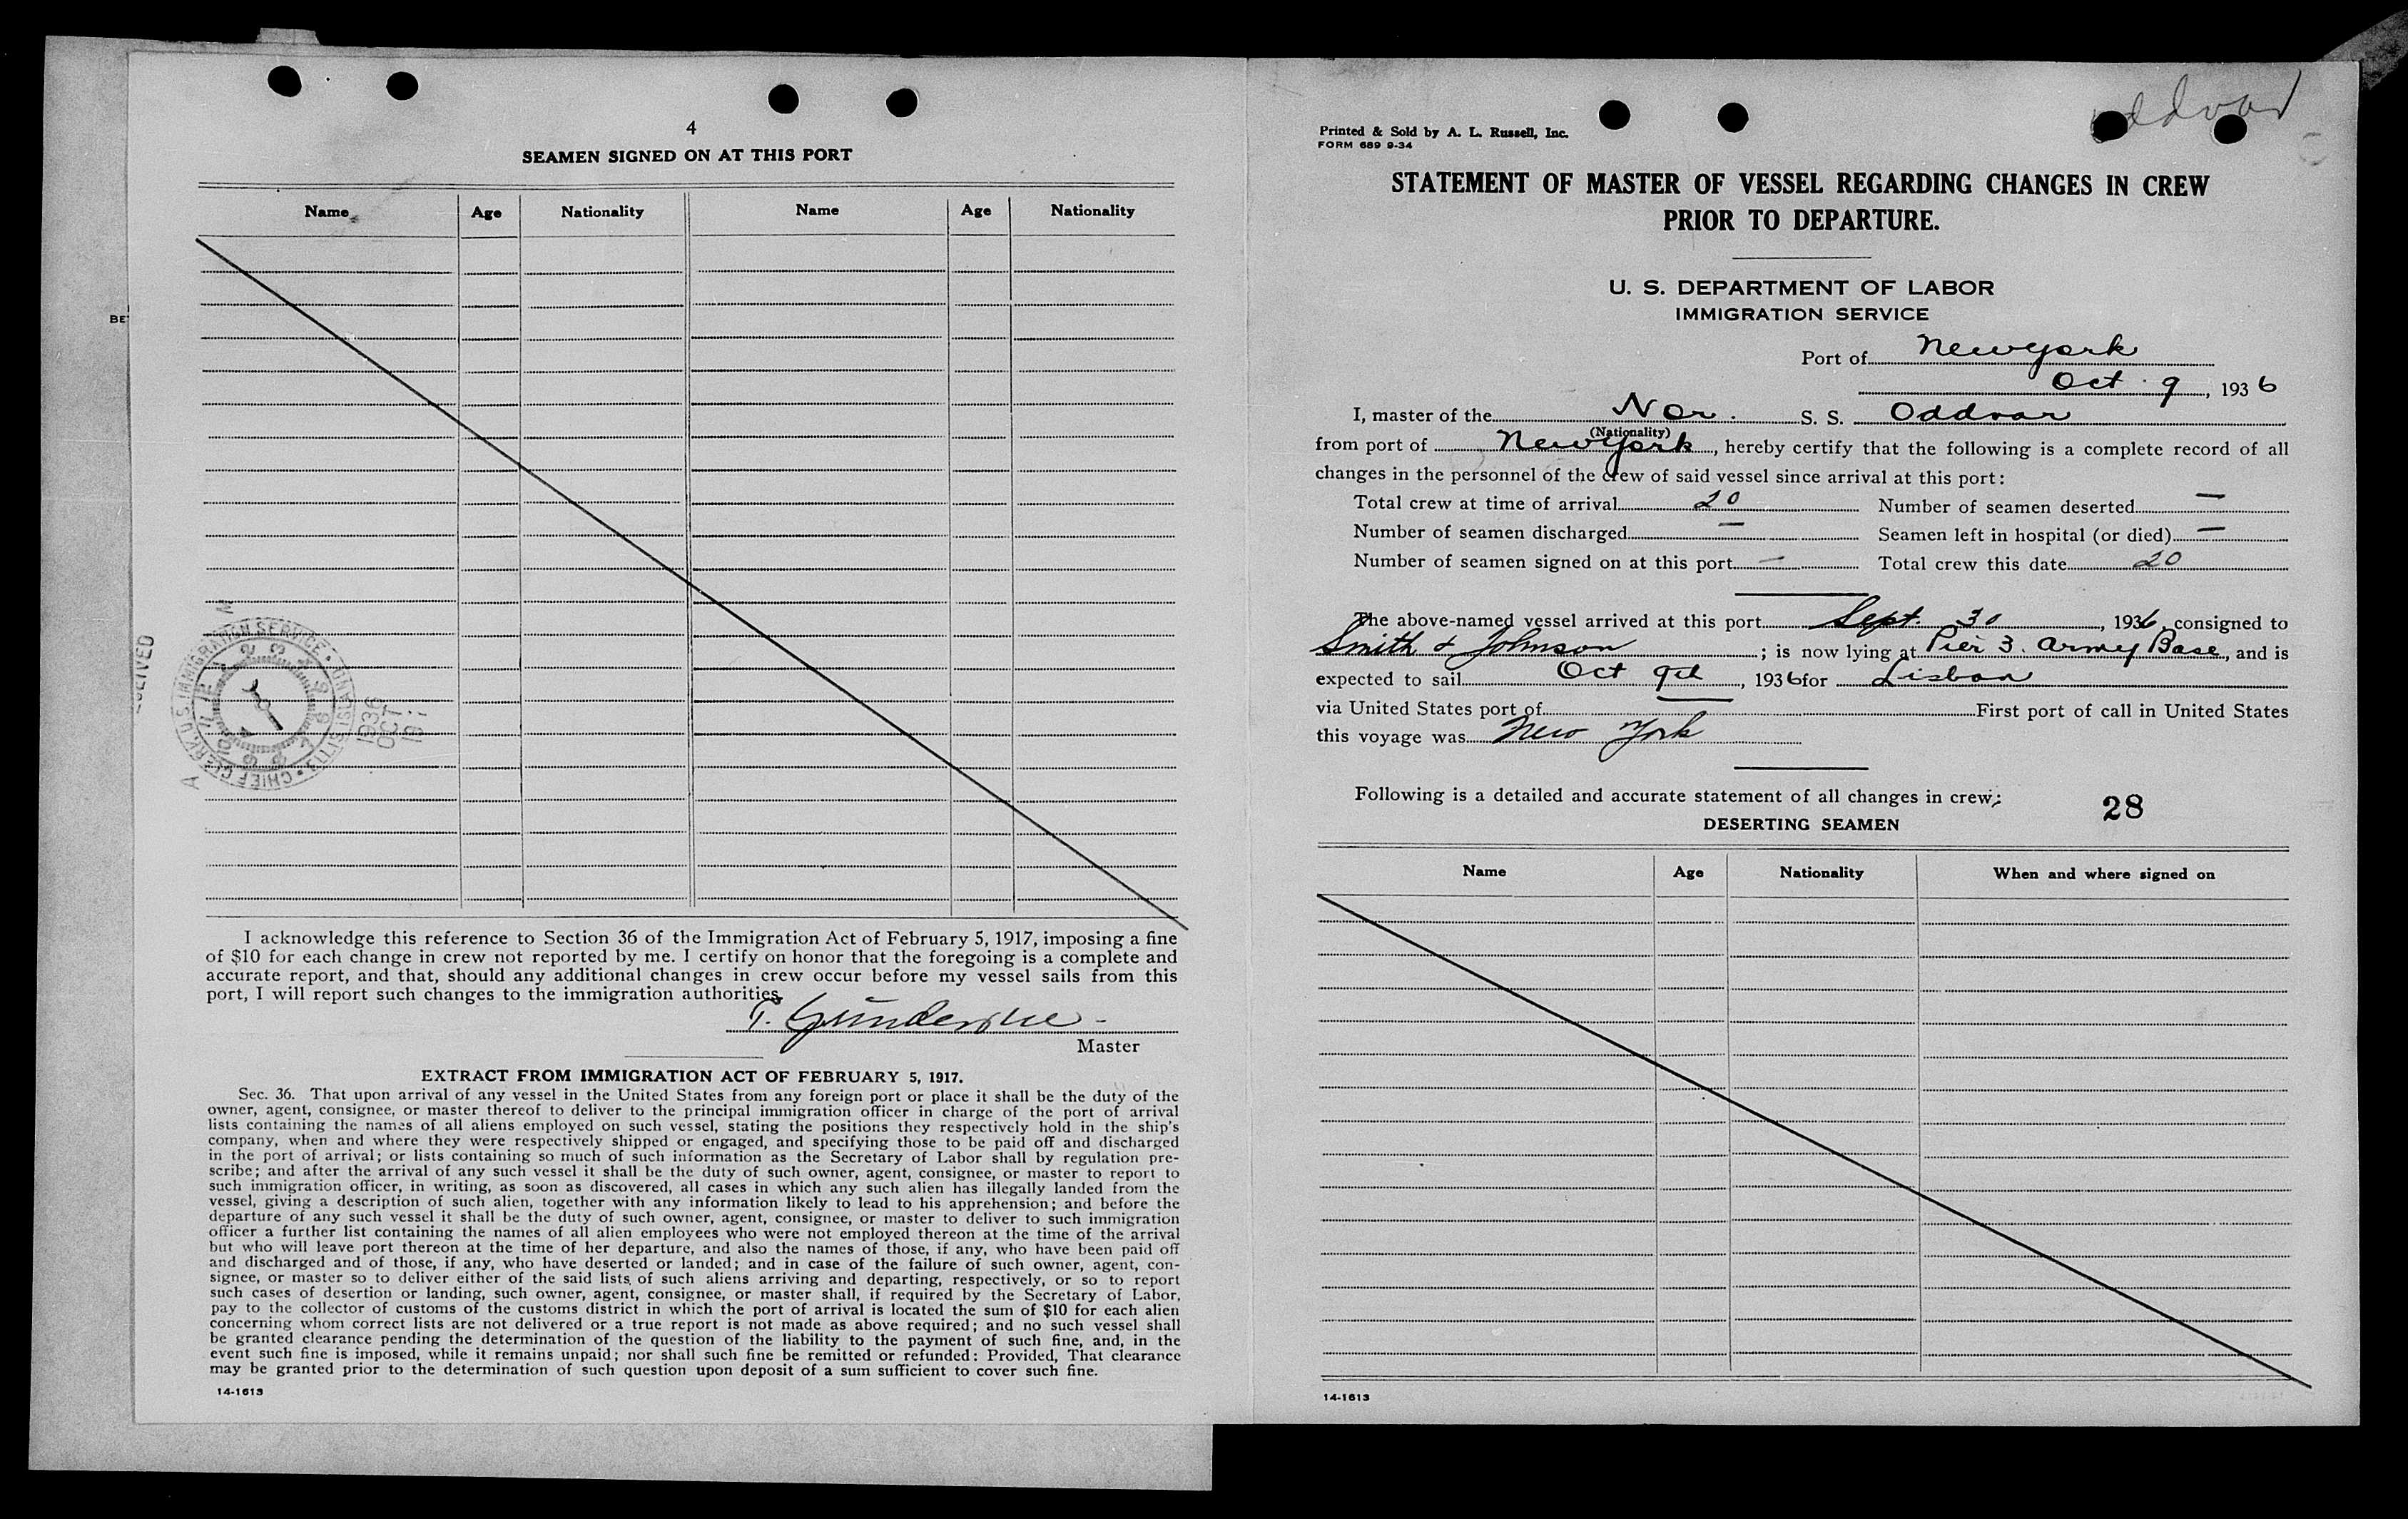 4
SEAMEN SIGNED ON AT THIS PORT
Name Age Nationality Name Age Nationality
BE
RECEIVED
CHIEF CLERK U.S. IMMIGRATION SERVICE • ELLIS ISLAND •
1936
OCT
I acknowledge this reference to Section 36 of the Immigration Act of February 5, 1917, imposing a fine
of $10 for each change in crew not reported by me. I certify on honor that the foregoing is a complete and
accurate report, and that, should any additional changes in crew occur before my vessel sails from this
port, I will report such changes to the immigration authorities.
T.
Master
EXTRACT FROM IMMIGRATION ACT OF FEBRUARY 5, 1917.
Sec. 36. That upon arrival of any vessel in the United States from any foreign port or place it shall be the duty of the
owner, agent, consignee, or master thereof to deliver to the principal immigration officer in charge of the port of arrival
lists containing the names of all aliens employed on such vessel, stating the positions they respectively hold in the ship's
company, when and where they were respectively shipped or engaged, and specifying those to be paid off and discharged
in the port of arrival; or lists containing so much of such information as the Secretary of Labor shall by regulation pre-
scribe; and after the arrival of any such vessel it shall be the duty of such owner, agent, consignee, or master to report to
such immigration officer, in writing, as soon as discovered, all cases in which any such alien has illegally landed from the
vessel, giving a description of such alien, together with any information likely to lead to his apprehension; and before the
departure of any such vessel it shall be the duty of such owner, agent, consignee, or master to deliver to such immigration
officer a further list containing the names of all alien employees who were not employed thereon at the time of the arrival
but who will leave port thereon at the time of her departure, and also the names of those, if any, who have been paid off
and discharged and of those, if any, who have deserted or landed; and in case of the failure of such owner, agent, con-
signee, or master so to deliver either of the said lists, of such aliens arriving and departing, respectively, or so to report
such cases of desertion or landing, such owner, agent, consignee, or master shall, if required by the Secretary of Labor,
pay to the collector of customs of the customs district in which the port of arrival is located the sum of $10 for each alien
concerning whom correct lists are not delivered or a true report is not made as above required; and no such vessel shall
be granted clearance pending the determination of the question of the liability to the payment of such fine, and, in the
event such fine is imposed, while it remains unpaid; nor shall such fine be remitted or refunded: Provided, That clearance
may be granted prior to the determination of such question upon deposit of a sum sufficient to cover such fine.
14-1613
Oddvar
Printed & Sold by A. L. Russell, Inc.
FORM 689 9-34
STATEMENT OF MASTER OF VESSEL REGARDING CHANGES IN CREW
PRIOR TO DEPARTURE.
U. S. DEPARTMENT OF LABOR
IMMIGRATION SERVICE
Port of New York
Oct. 9, 1936
I, master of the Nor. S. S. Oddvar
(Nationality)
from port of New York, hereby certify that the following is a complete record of all
changes in the personnel of the crew of said vessel since arrival at this port:
Total crew at time of arrival 20 Number of seamen deserted —
Number of seamen discharged — Seamen left in hospital (or died) —
Number of seamen signed on at this port — Total crew this date 20
The above-named vessel arrived at this port Sept. 30, 1936, consigned to
Smith & Johnson; is now lying at Pier 3. Army Base, and is
expected to sail Oct 9th, 1936 for Lisbon
via United States port of — First port of call in United States
this voyage was New York
Following is a detailed and accurate statement of all changes in crew:
28
DESERTING SEAMEN
Name Age Nationality When and where signed on
14-1613